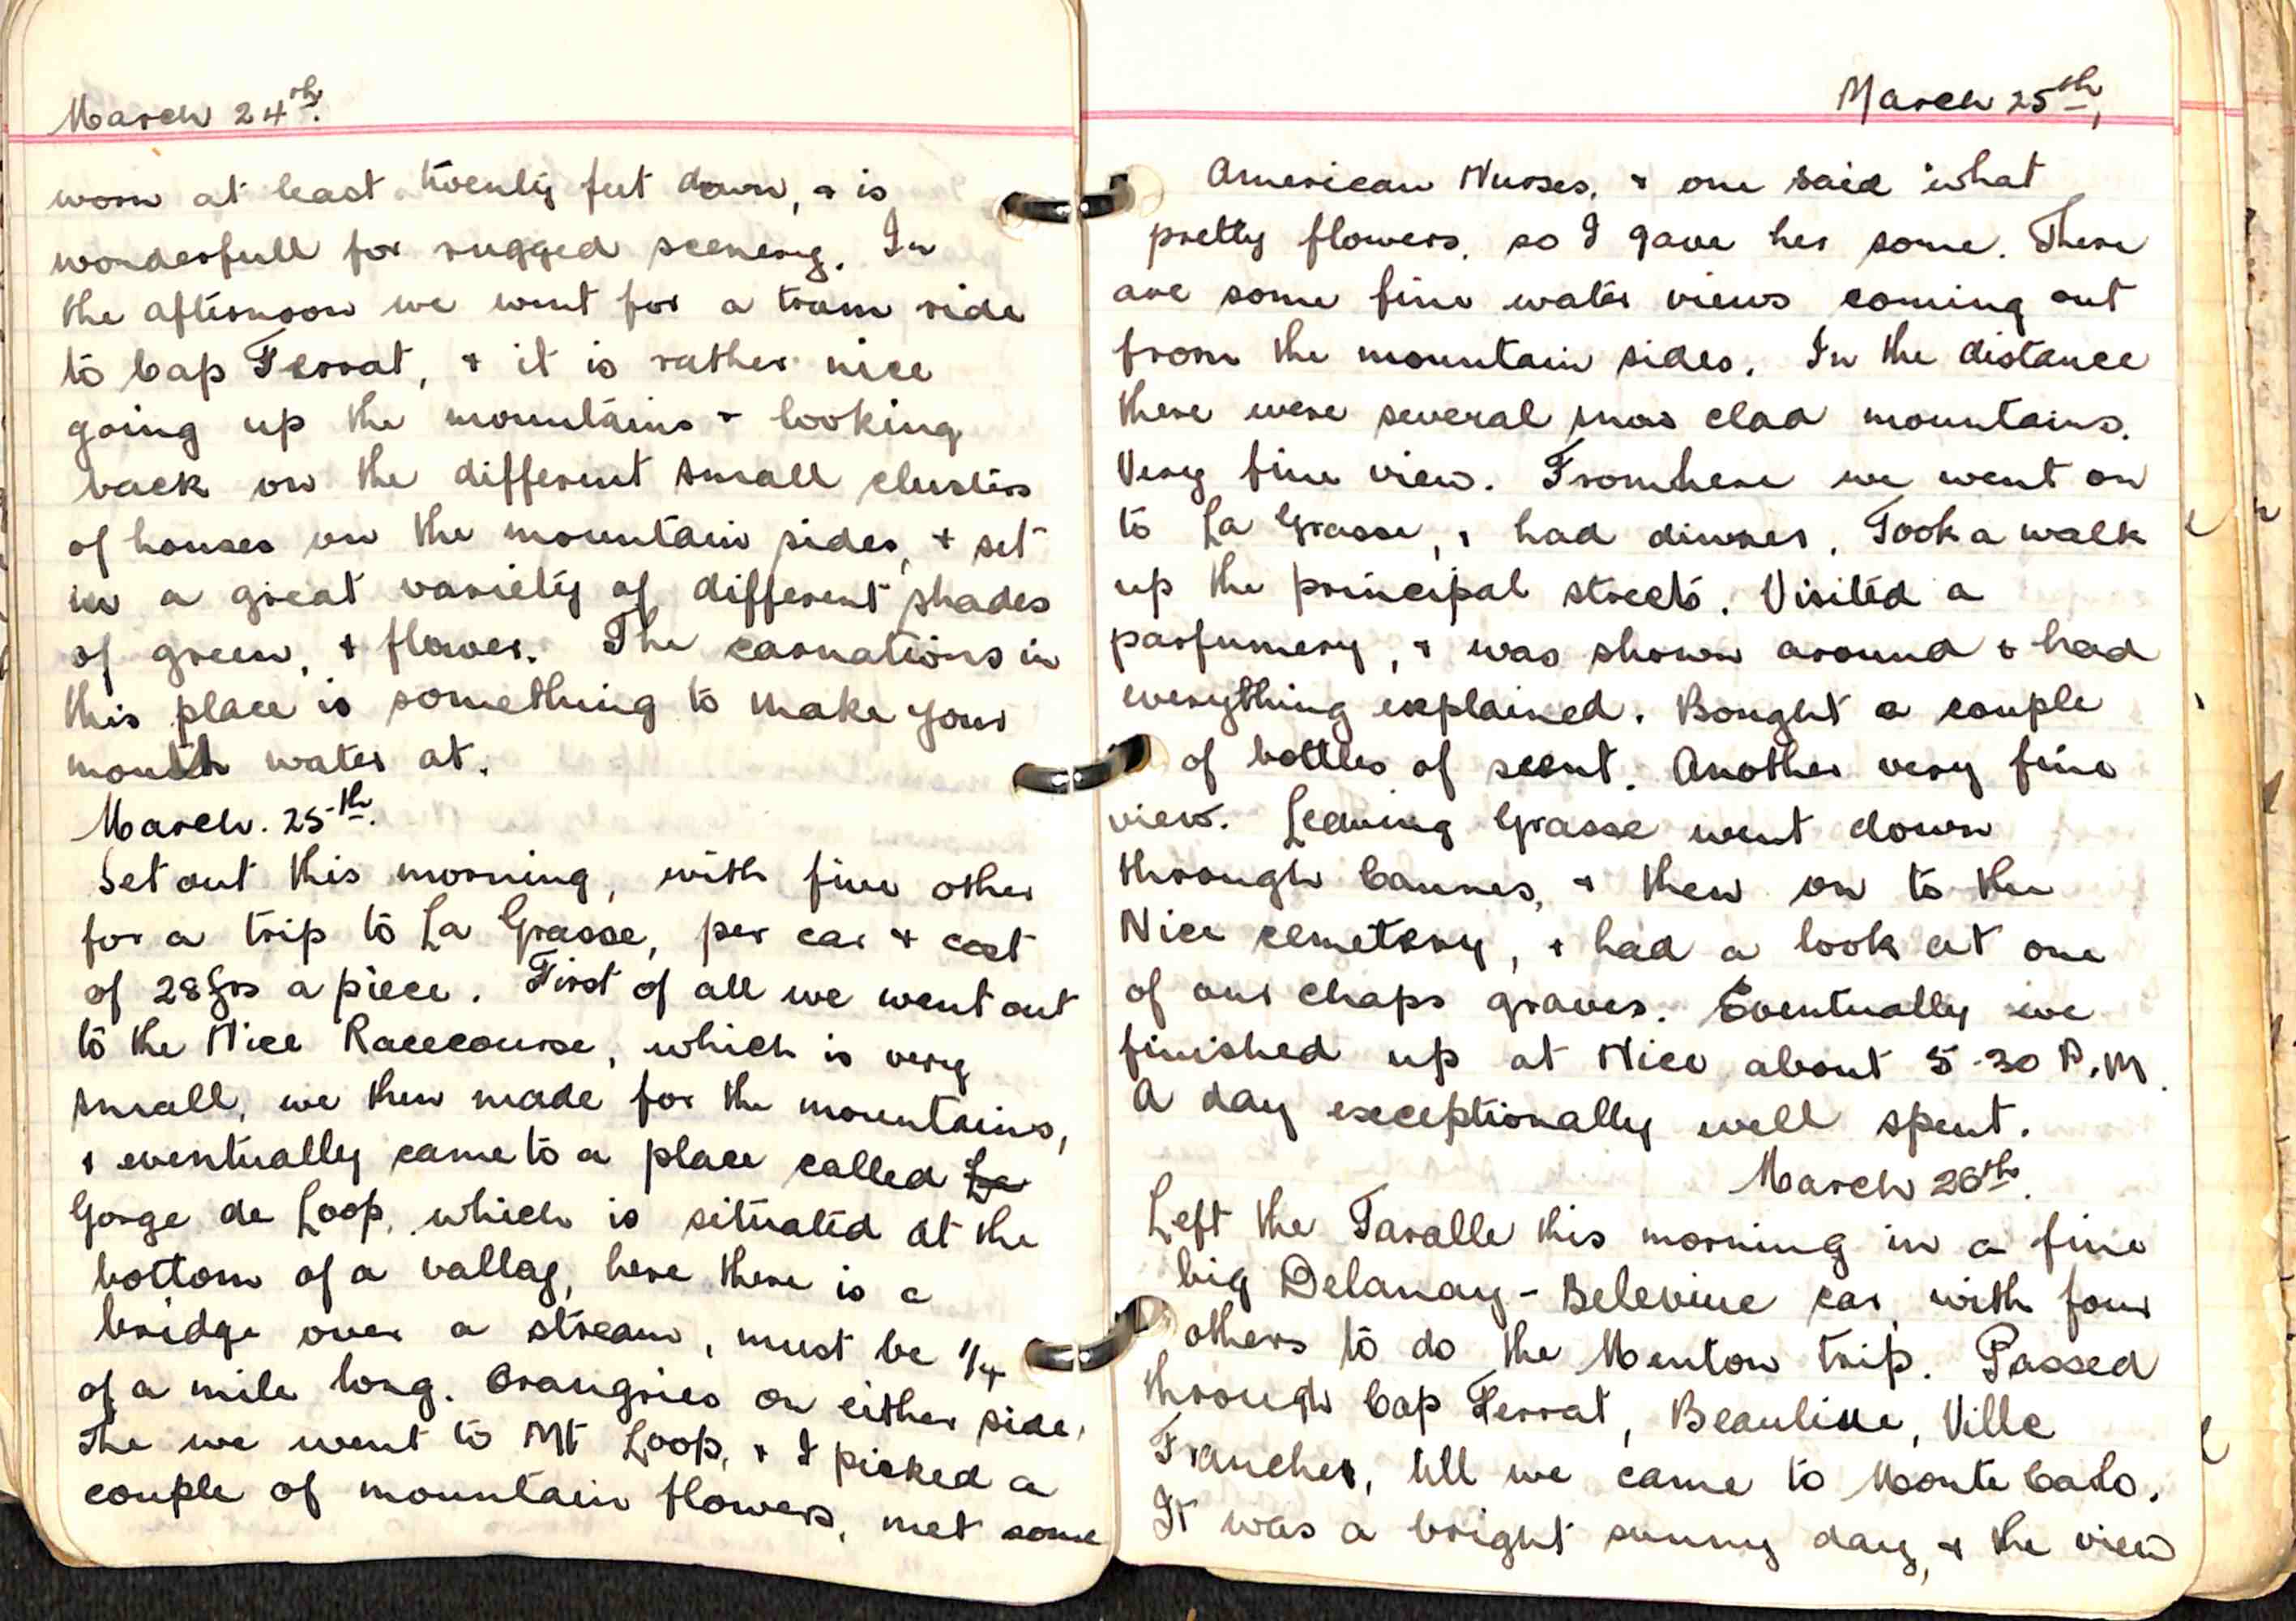 March 24th.
worn at least twenty feet down, & is
wonderfull for rugged scenery. In
the afternoon we went for a tram ride
to Cap Ferrat, & it is rather nice
going up the mountains & looking
back on the different small clusters
of houses on the mountain sides, & set
in a great variety of different shades
of green, & flower. The carnations in
this place is something to make your
mouth water at.
March. 25th.
Set out this morning, with five other
for a trip to La Grasse, per car & cost
of 28 frs a piece. First of all we went out
to the Nice Racecourse, which is very
small, we then made for the mountains,
& eventually came to a place called La
Gorge de Loop, which is situated at the
bottom of a vallag, here there is a
bridge over a stream, must be 1/4
of a mile long. Orangries on either side.
The we went to Mt Loop, & I picked a
couple of mountain flowers, met some
March 25th,
American Nurses, & one said what
pretty flowers, so I gave her some. There
are some fine water views coming out
from the mountain sides. In the distance
there were several snow clad mountains.
Very fine view. From here we went on
to La Grasse, & had dinner. Took a walk
up the principal streets. Visited a
parfumery, & was shown around & had
everything explained. Bought a couple
of bottles of scent. Another very fine
view. Leaving Grasse went down
through Cannes, & then on to the
Nice cemetery, & had a look at one
of our chaps graves. Eventually we
finished up at Nice about 5-30 P.M.
A day exceptionally well spent.
March 26th.
Left the Taralle this morning in a fine
big Delanay-Belevine car, with four
others to do the Menton trip. Passed
through Cap Ferrat, Beauliue, Ville
Franches, till we came to Monte Carlo.
It was a bright sunny day, & the view